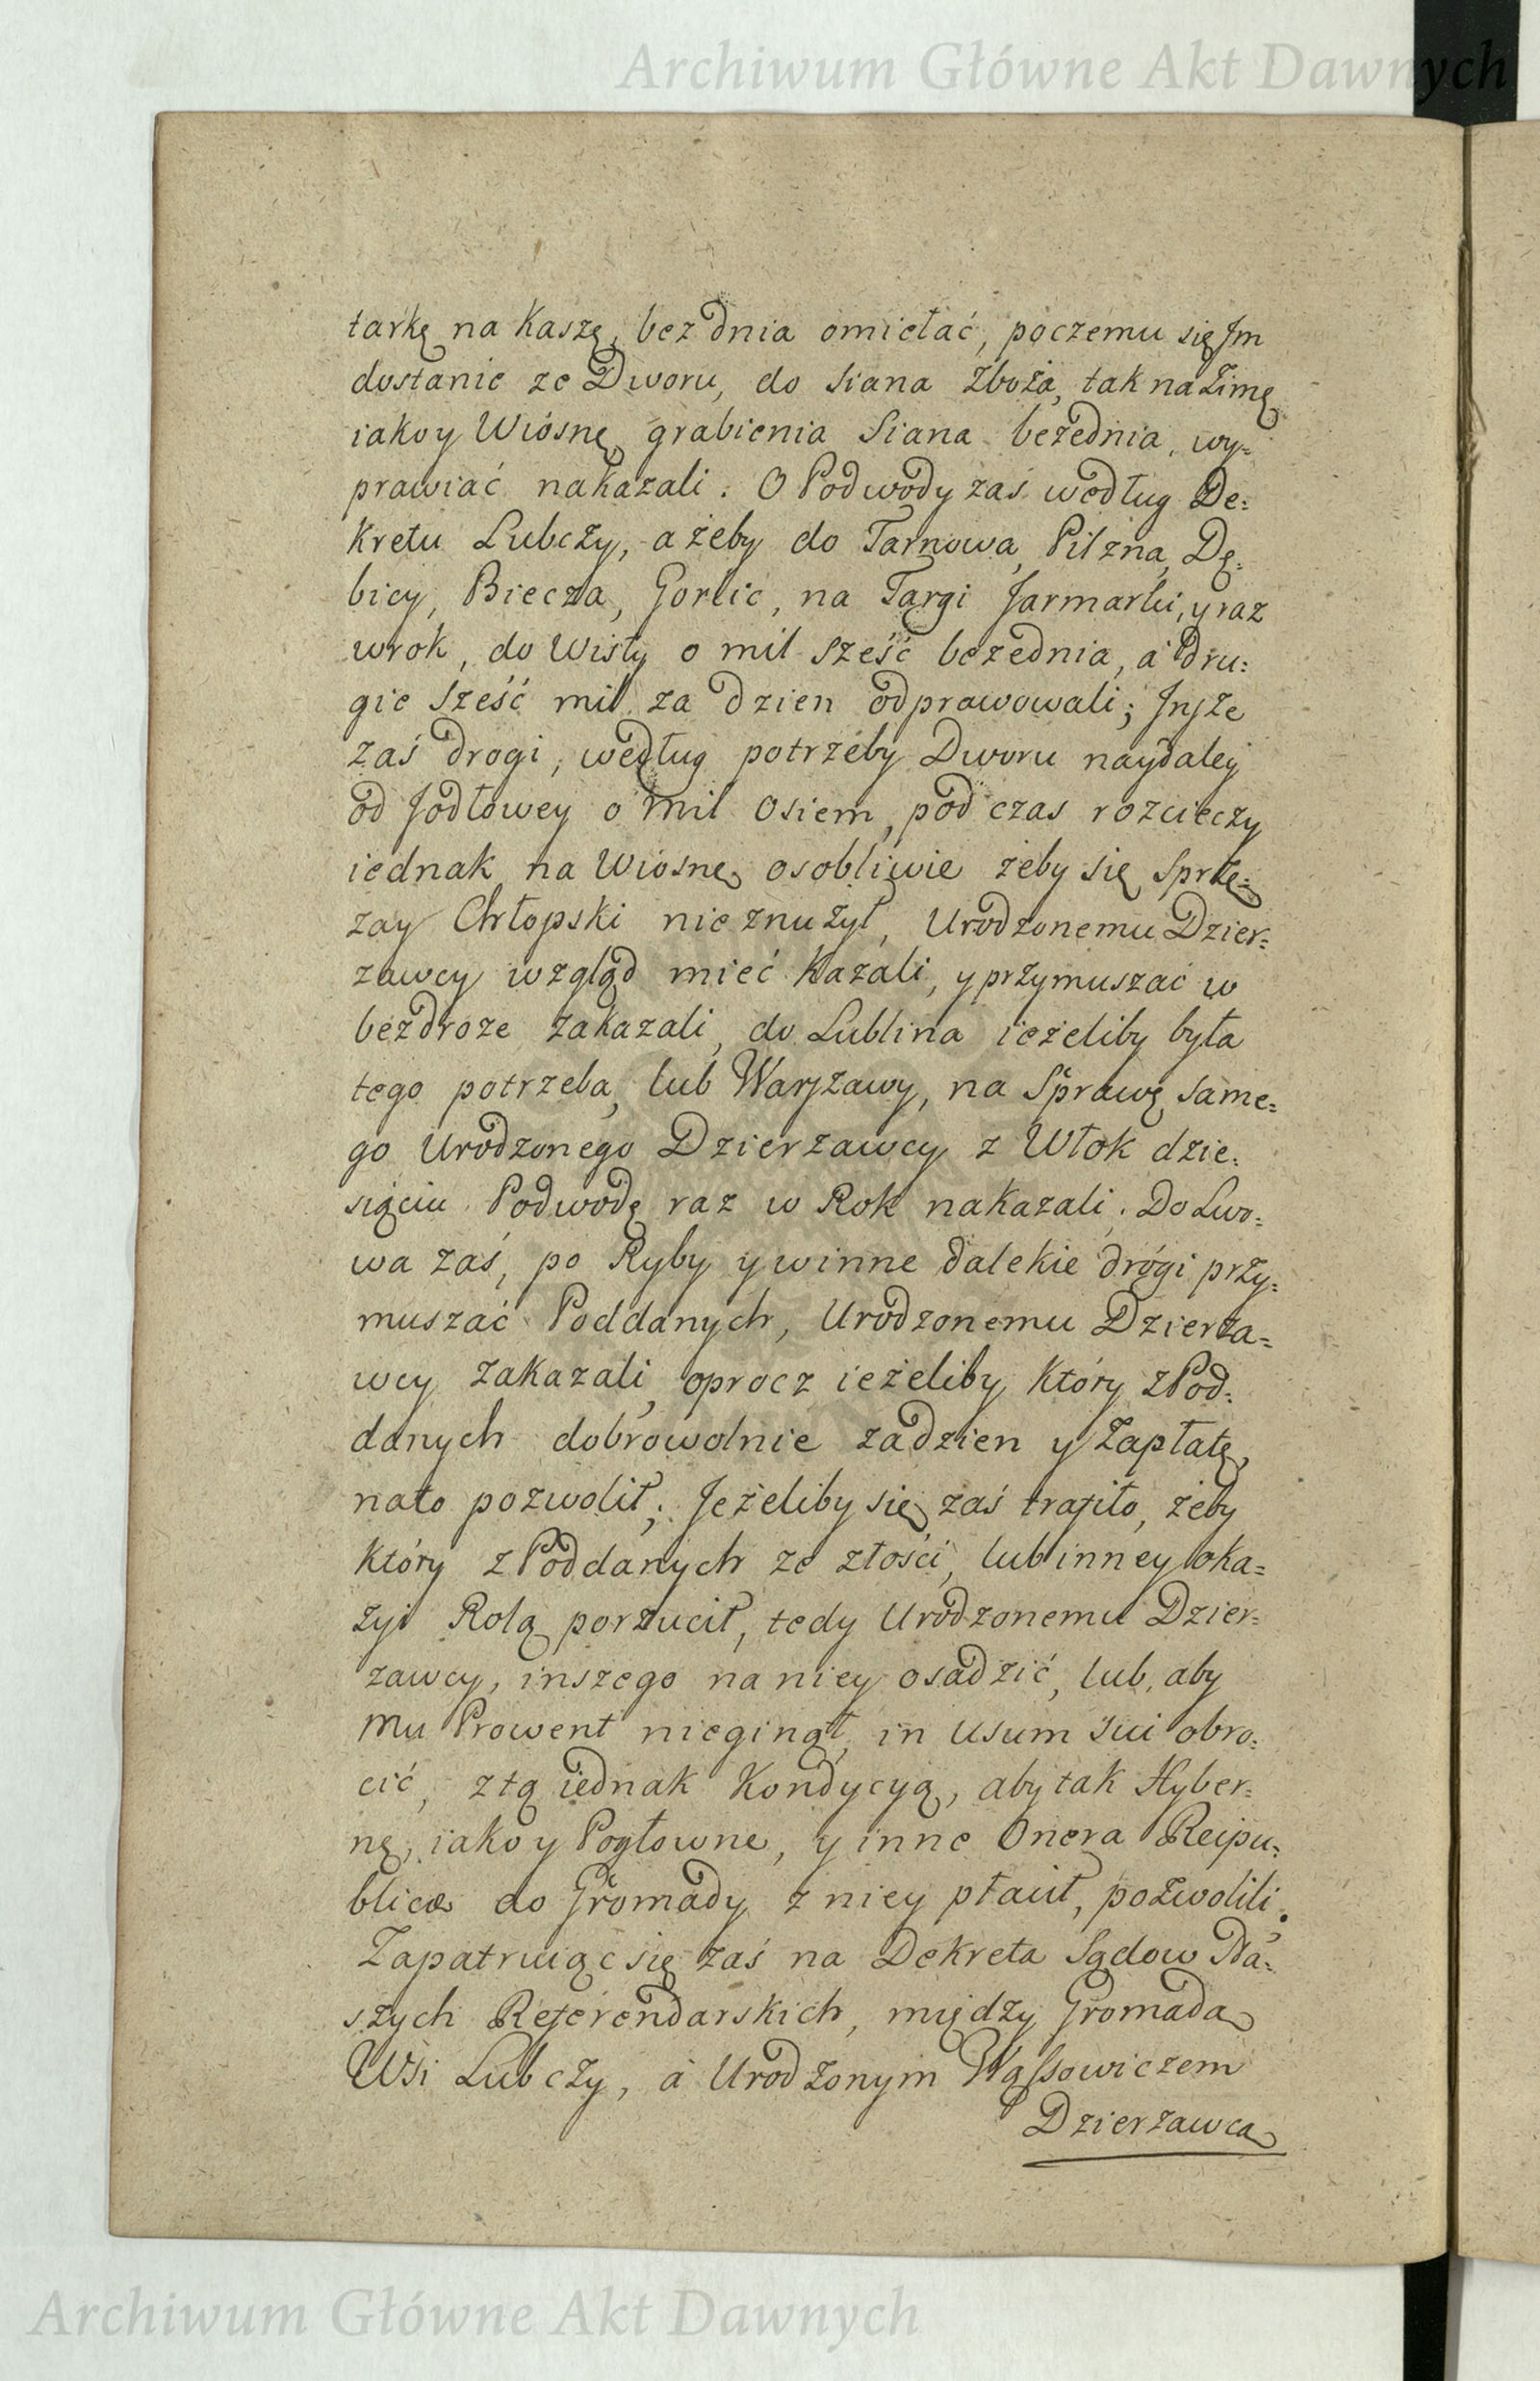 Archiwum Główne Akt Dawnych
tarkę na Kaszę, bez dnia omietać, poczemu się Jm
dostanie ze Dworu, do siana Zboża, tak na Zimę
iako y Wiosnę, grabienia Siana bezednia, wy=
prawiać nakazali. O Podwody zaś według De=
kretu Lubczy, a żeby do Tarnowa, Pilzna, Dę=
bicy, Biecza, Gorlic, na Targi Jarmarki, y raz
wrok, do Wisły o mil sześć bezednia, a dru=
gie sześć mil za dzien odprawowali; Jnsze
zaś drogi, według potrzeby Dworu naydaley
od Jodłowey o mil osiem, pod czas rozcieczy
iednak na Wiosnę osobliwie żeby się Sprzę=
żay Chłopski nie znużył, Urodzonemu Dzier=
zawcy wzgląd mieć kazali, y przymuszać w
bezdroże zakazali, do Lublina ieżeliby była
tego potrzeba, lub Warszawy, na Sprawę same=
go Urodzonego Dzierzawcy z Włok dzie=
sięciu Podwodę raz w Rok nakazali. Do Lwo=
wa zaś, po Ryby y winne dalekie drógi przy=
muszać Poddanych, Urodzonemu Dzierza=
wcy zakazali, oprocz ieżeliby który z Pod=
danych dobrowolnie zadzien y Zapłatę,
nato pozwolił; Jeżeliby się zaś trafiło, żeby
który z Poddanych ze złości, lub inney oka=
zyi Rolą porzucił, tedy Urodzonemu Dzier=
zawcy, inszego na niey osadzić, lub, aby
mu Prowent nieginął, in usum sui obro=
cić, z tą iednak Kondycyą, aby tak Hyber=
nę, iako y Pogłowne, y inne Onera Reipu=
blicæ do Gromady z niey płacił, pozwolili.
Zapatruiąc się zaś na Dekreta Sądow Na=
szych Referendarskich, między Gromadą
Wsi Lubczy, a Urodzonym Wąssowiczem
Dzierzawcą
Archiwum Główne Akt Dawnych